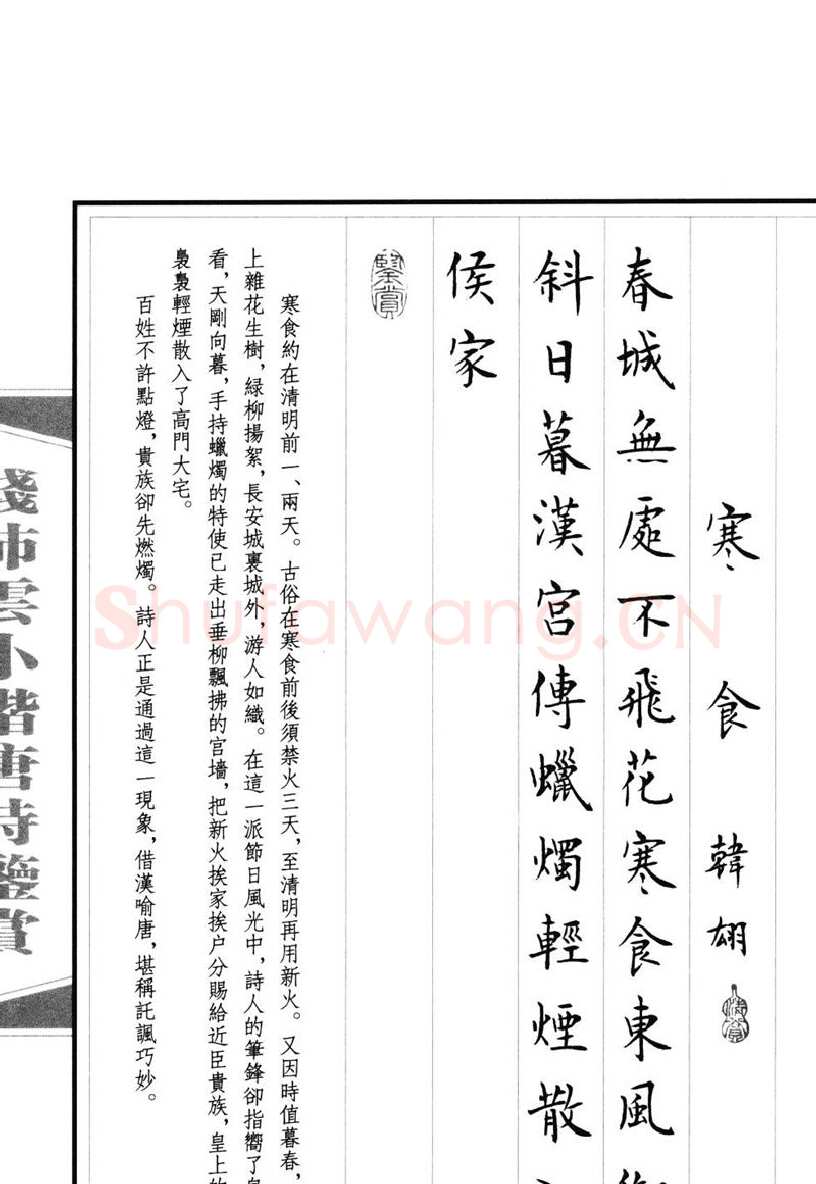 寒食 韓翃
春城無處不飛花寒食東風御
斜日暮漢宮傳蠟燭輕煙散
侯家
鑒賞
寒食約在清明前一、兩天。古俗在寒食前後須禁火三天，至清明再用新火。又因時值暮春，
上雜花生樹，綠柳揚絮，長安城裏城外，游人如織。在這一派節日風光中，詩人的筆鋒卻指嚮了皇
看，天剛向暮，手持蠟燭的特使已走出垂柳飄拂的宮墻，把新火挨家挨户分賜給近臣貴族，皇上的
裊裊輕煙散入了高門大宅。
百姓不許點燈，貴族卻先燃燭。詩人正是通過這一現象，借漢喻唐，堪稱託諷巧妙。
錢沛雲小楷唐詩鑒賞
Shufawang.CN